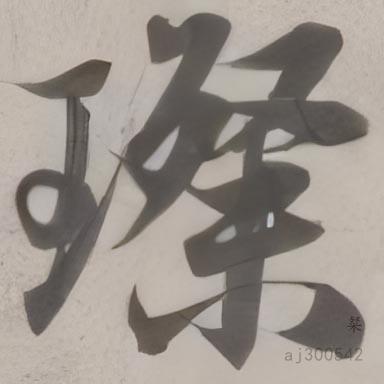 璨
aj300542